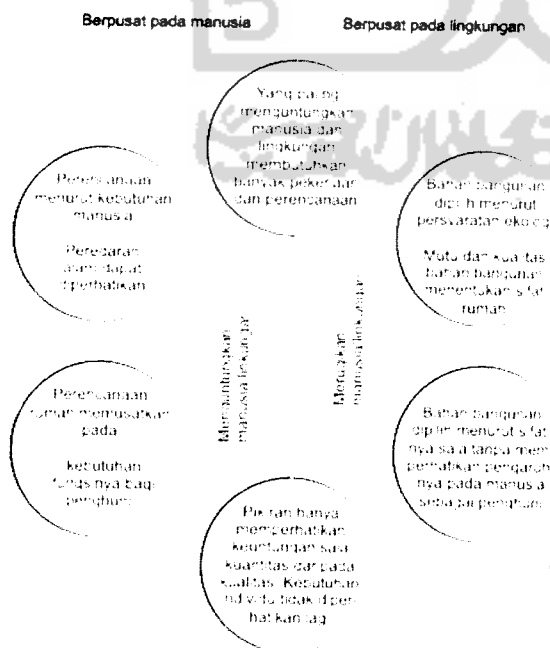 Berpusat pada manusia
Berpusat pada lingkungan
Yang paling
menguntungkan
manusia dan
lingkungan
membutuhkan
banyak pekerjaan
dan perencanaan
Perencanaan
menurut kebutuhan
manusia
Peredaran
alam dapat
diperhatikan
Bahan bangunan
dipilih menurut
persyaratan ekologi
Mutu dan kualitas
bahan bangunan
menentukan sifat
rumah
Menguntungkan
manusia/linkungan
Merugikan
manusia/linkungan
Perencanaan
rumah memusatkan
pada
kebutuhan
fungsinya bagi
penghuni
Bahan bangunan
dipilih menurut sifat
nya saja tanpa mem
perhatikan pengaruh
nya pada manusia
sebagai penghuni
Pikiran hanya
memperhatikan
keuntungan saja
kuantitas daripada
kualitas. Kebutuhan
individu tidak diper-
hatikan lagi